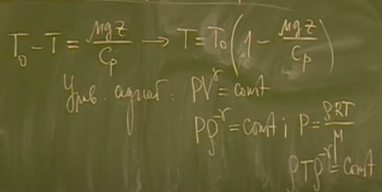 T₀ - T = μgz/Cp → T = T₀(1 - μgz/Cp)
Урав. адиаб.: PV^γ = const
Pρ^-γ = const; P = ρRT/μ
ρTρ^-γ = const